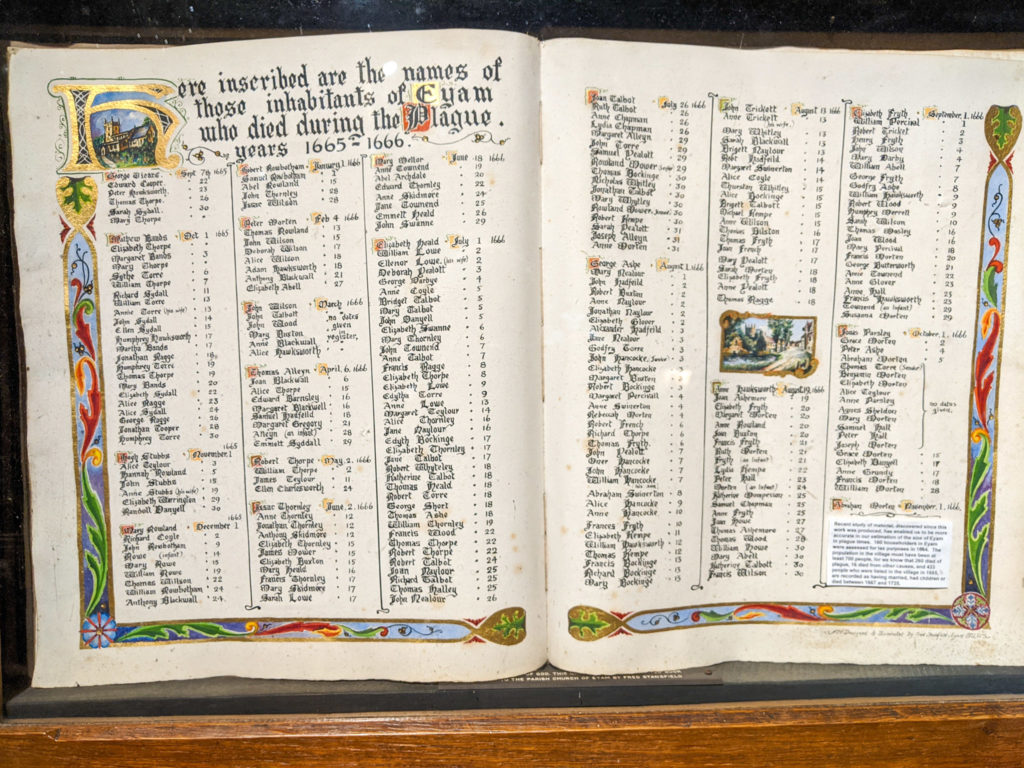 Here inscribed are the names of
those inhabitants of Eyam
who died during the Plague.
years 1665-1666.
George Vicars. Sept 7th 1665
Edward Cooper. 22
Peter Hawksworth. 23
Thomas Thorpe. 26
Sarah Sydall. 30
Mary Thorpe.
Mathew Bands Oct 1 1665
Elizabeth Thorpe
Margaret Bands 3
Mary Thorpe
Sythe Torre 6
William Thorpe 7
Richard Sydall 11
William Torre 13
Anne Torre (his wife) 13
John Sydall 14
Ellen Sydall 15
Humphrey Hawksworth 17
Martha Bands 17
Jonathan Ragge 18
Humphrey Torre 19
Thomas Thorpe 19
Mary Bands 20
Elizabeth Sydall 22
Alice Ragge 23
Alice Sydall 24
George Ragge 26
Jonathan Cooper 28
Humphrey Torre 30
1665
Hugh Stubbs November 1
Alice Teylour 3
Hannah Rowland 5
John Stubbs 15
Anne Stubbs (his wife) 19
Elizabeth Warrington 29
Randoll Danyell 30
1665
Mary Rowland December 1
Richard Coyle 2
John Rowbotham 9
Rowe (infant) 14
Mary Rowe 15
William Rowe 19
Thomas Willson 22
William Rowbotham 24
Anthony Blackwall 24
Robert Rowbotham January 1 1666
Samuel Rowbotham 1
Abel Rowland 15
John Thornley 28
Isaac Wilson 28
Peter Morten Feb 4 1666
Thomas Rowland 13
John Wilson 15
Deborah Wilson 17
Alice Wilson 18
Adam Hawksworth 18
Anthony Blackwall 21
Elizabeth Abell 27
John Wilson March 1666
John Talbott no dates
John Wood given
Mary Buxton register,
Anne Blackwall
Alice Hawksworth
Thomas Alleyn April 6, 1666
Joan Blackwall 6
Alice Thorpe 15
Edward Barnsley 16
Margaret Blackwell 16
Samuel Hadfeild 18
Margaret Gregory 21
Alleyn (an infant) 28
Emmott Syddall 29
Robert Thorpe May 2 1666
William Thorpe 2
James Teylour 11
Ellen Charlesworth 24
Isaac Thornley June 2 1666
Anne Thornley 12
Jonathan Thornley 12
Anthony Skidmore 12
Elizabeth Thornley 15
James Mower 15
Elizabeth Buxton 15
Mary Heald 16
Francis Thornley 17
Mary Skidmore 17
Sarah Lowe 17
Mary Mellor June 18 1666
Anne Townend 19
Abel Archdale 20
Edward Thornley 22
Anne Skidmore 24
Jane Townend 25
Emmett Heald 26
John Swanne 29
Elizabeth Heald July 1 1666
William Lowe 2
Ellenor Lowe (his wife) 3
Deborah Dealott 3
George Darbye 4
Anne Coyle 5
Bridget Talbot 5
Mary Talbot 5
John Danyell 5
Elizabeth Swanne 6
Mary Thornley 6
John Townend 7
Anne Talbot 7
Francis Ragge 8
Elizabeth Thorpe 8
Elizabeth Lowe 9
Edytha Torre 9
Anne Lowe 13
Margaret Teylour 14
Alice Thornley 16
Jane Naylour 16
Edyth Bockinge 17
Elizabeth Thornley 17
Jane Talbot 17
Robert Whyteley 18
Katherine Talbot 18
Thomas Heald 18
Robert Torre 18
George Short 18
Thomas Ashe 18
William Thornley 19
Francis Wood 22
Thomas Thorpe 22
Robert Thorpe 22
Robert Talbot 24
Joan Naylor 25
Richard Talbot 25
Thomas Halley 25
John Nealour 26
Joan Talbot July 26 1666
Ruth Talbot 26
Anne Chapman 26
Lydia Chapman 26
Margaret Alleyn 29
John Torre 29
Samuel Dealott 29
Rowland Mower (Senior) 29
Thomas Bockinge 30
Nicholas Whitley 30
Jonathan Talbot 30
Mary Whytley 30
Rowland Mower (Junior) 30
Robert Kempe 30
Sarah Dealott 31
Joseph Alleyn 31
Anne Morten 31
George Ashe August 1 1666
Mary Nealour 1
John Hadfeild 2
Robert Buxton 2
Anne Naylour 2
Jonathan Naylor 2
Elizabeth Glover 2
Alexander Hadfeild 3
Jane Nealour 3
Godfry Torre 3
John Hancocke, Junior 3
Elizabeth Hancocke 3
Margaret Buxton 3
Robert Bockinge 3
Margaret Percivall 4
Anne Swinerton 4
Rebecah Morten 4
Robert French 6
Richard Thorpe 6
Thomas Fryth 6
John Dealott 7
Oner Hancocke 7
John Hancocke 7
William Hancocke 7
Abraham Swinerton 8
Alice Hancocke 9
Anne Hancocke 10
Frances Fryth 10
Elizabeth Kempe 11
William Hawksworth 12
Thomas Kempe 12
Francis Bockinge 13
Richard Bockinge 13
Mary Bockinge 15
John Trickett August 13 1666
Anne Trickett (his wife) 13
Mary Whitley 13
Sarah Blackwall 13
Brigett Naylour 13
Robt Hadfeild 14
Margaret Swinerton 14
Alice Coyle 14
Thurston Whitley 15
Alice Bockinge 15
Brigett Talbott 15
Michael Kempe 15
Anne Wilson 15
Thomas Bilston 16
Thomas Fryth 17
Joan French 17
Mary Dealott 17
Sarah Morten 18
Elizabeth Fryth 18
Anne Dealott 18
Thomas Ragge 18
Anne Hawksworth August 19 1666
Joan Ashemore 19
Elizabeth Fryth 20
Margaret Morten 20
Anne Rowland 20
Joan Buxton 20
Francis Fryth 21
Ruth Morten 21
Fryth (an infant) 21
Lydia Kempe 22
Peter Hall 23
Morten (an infant) 24
Katherine Mompesson 25
Samuel Chapman 25
Anne Fryth 25
Joan Howe 27
Thomas Ashemore 27
Thomas Wood 28
William Howe 30
Mary Abell 30
John Thorpe 30
Francis Wilson 30
Elizabeth Fryth September 1, 1666
William Percival 1
Robert Tricket 2
Henry Fryth 3
John Wilson 4
Mary Darby 4
William Abell 7
George Fryth 7
Godfry Ashe 8
William Hawksworth 9
Robert Wood 9
Humphry Merrett 9
Sarah Wilson 10
Thomas Mosley 16
Joan Wood 16
Mary Percival 18
Francis Morten 20
George Butterworth 21
Anne Townend 22
Anne Glover 23
Anne Hall 23
Francis Hawksworth 23
Townend (an infant) 29
Susanna Morten 29
James Parsley October 1, 1666
Grace Morten 2
Peter Ashe 4
Abraham Morten 5
Thomas Torre (Senior)
Benjamin Morten
Elizabeth Morten
Alice Teylour
Anne Parsley
Agnes Sheldon no dates
Mary Morten given.
Samuel Hall
Peter Hall
Joseph Morten
Grace Morten 15
Elizabeth Danyell 17
Anne Grundy 17
Francis Morten 18
William Morten 28
Abraham Morten November 1 1666
Recent study of material, discovered since this
work was produced, has enabled us to be more
accurate in our estimation of the size of Eyam
in plague times. 160 householders in Eyam
were assessed for tax purposes in 1664. The
population in the village must have been at
least 700 people, for we know that 260 died of
plague, 16 died from other causes, and 433
people who were listed in the village in 1665,
are recorded as having married, had children or
died between 1667 and 1735.
OF GOD. THIS
TO THE PARISH CHURCH OF EYAM BY FRED STANSFIELD